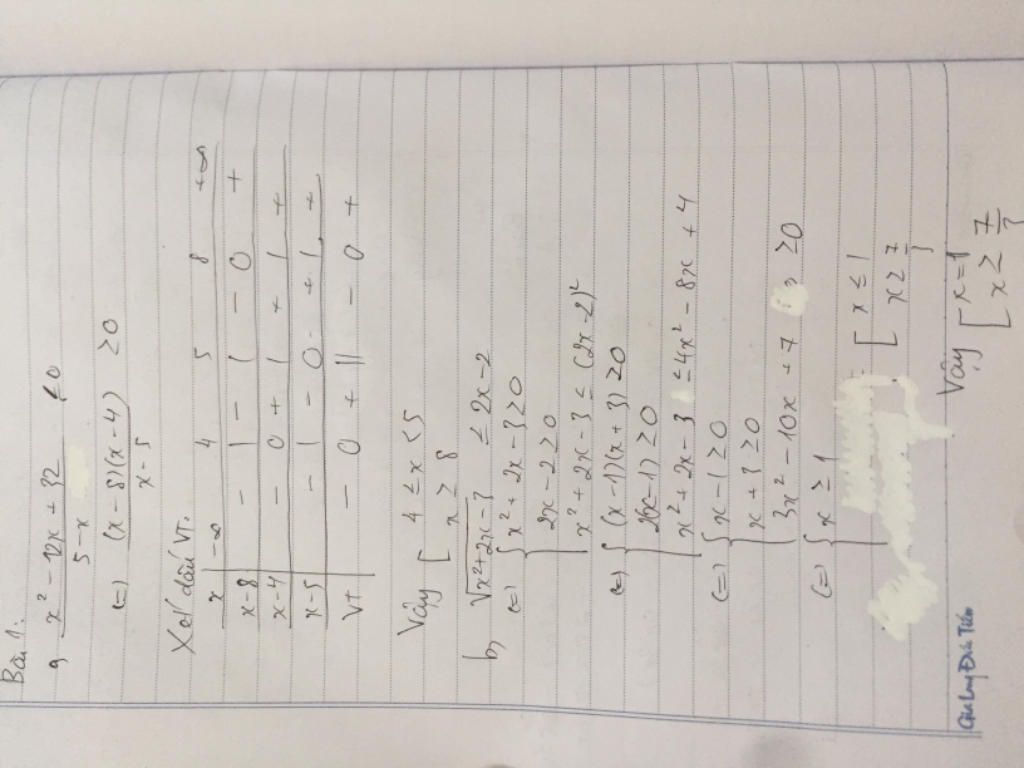 Bài 1:
a, x² - 12x + 32 / 5 - x ≤ 0
(=) (x - 8)(x - 4) / x - 5 ≥ 0
Xét dấu VT.
x | -∞ 4 5 8 +∞
x-8 | - | - | - 0 +
x-4 | - 0 + | + | +
x-5 | - | - 0 + | +
VT | - 0 + || - 0 +
Vậy [ 4 ≤ x < 5
x ≥ 8
b, √x²+2x-3 ≤ 2x - 2
(=) { x² + 2x - 3 ≥ 0
2x - 2 ≥ 0
x² + 2x - 3 ≤ (2x - 2)²
(=) { (x - 1)(x + 3) ≥ 0
2(x - 1) ≥ 0
x² + 2x - 3 ≤ 4x² - 8x + 4
(=) { x - 1 ≥ 0
x + 3 ≥ 0
3x² - 10x + 7 ≥ 0
(=) { x ≥ 1
[ x ≤ 1
x ≥ 7/3
Vậy [ x = 1
x ≥ 7/3